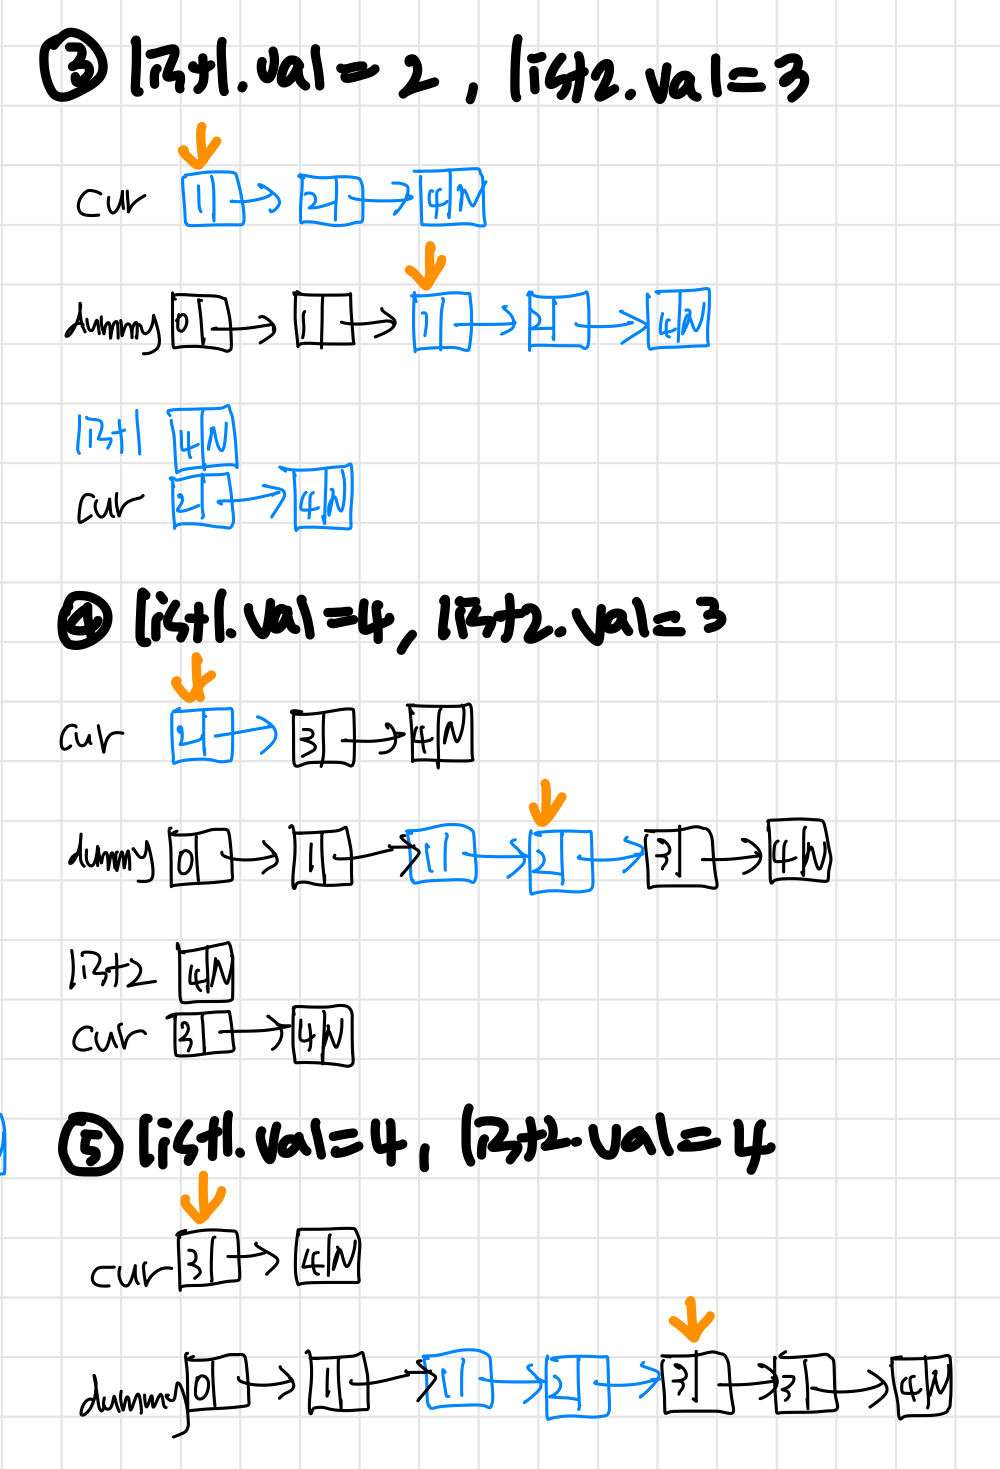 ③ list1.val = 2, list2.val = 3
cur 1 → 2 → 4 N
dummy 0 → 1 → 1 → 2 → 4 N
list1 4 N
cur 2 → 4 N
④ list1.val = 4, list2.val = 3
cur 2 → 3 → 4 N
dummy 0 → 1 → 1 → 2 → 3 → 4 N
list2 4 N
cur 3 → 4 N
⑤ list1.val = 4, list2.val = 4
cur 3 → 4 N
dummy 0 → 1 → 1 → 2 → 3 → 3 → 4 N